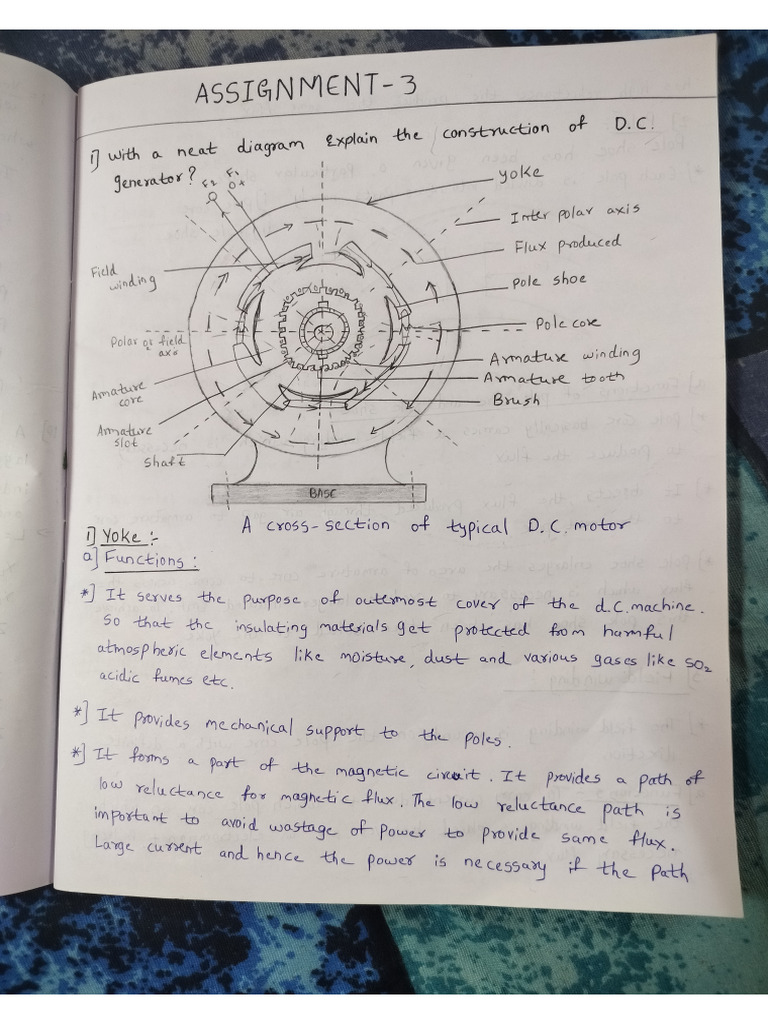 ASSIGNMENT-3
1] With a neat diagram explain the construction of D.C.
generator?
F2
F1
yoke
Inter polar axis
Flux produced
Pole shoe
Pole core
Armature winding
Armature tooth
Brush
Field
winding
Polar or field
axis
Armature
core
Armature
slot
Shaft
BASE
A cross-section of typical D.C. motor
1] Yoke :-
a] Functions :
*] It serves the purpose of outermost cover of the d.c. machine.
So that the insulating materials get protected from harmful
atmospheric elements like moisture, dust and various gases like SO2
acidic fumes etc.
*] It provides mechanical support to the poles.
*] It forms a part of the magnetic circuit. It provides a path of
low reluctance for magnetic flux. The low reluctance path is
important to avoid wastage of power to provide same flux.
Large current and hence the power is necessary if the path